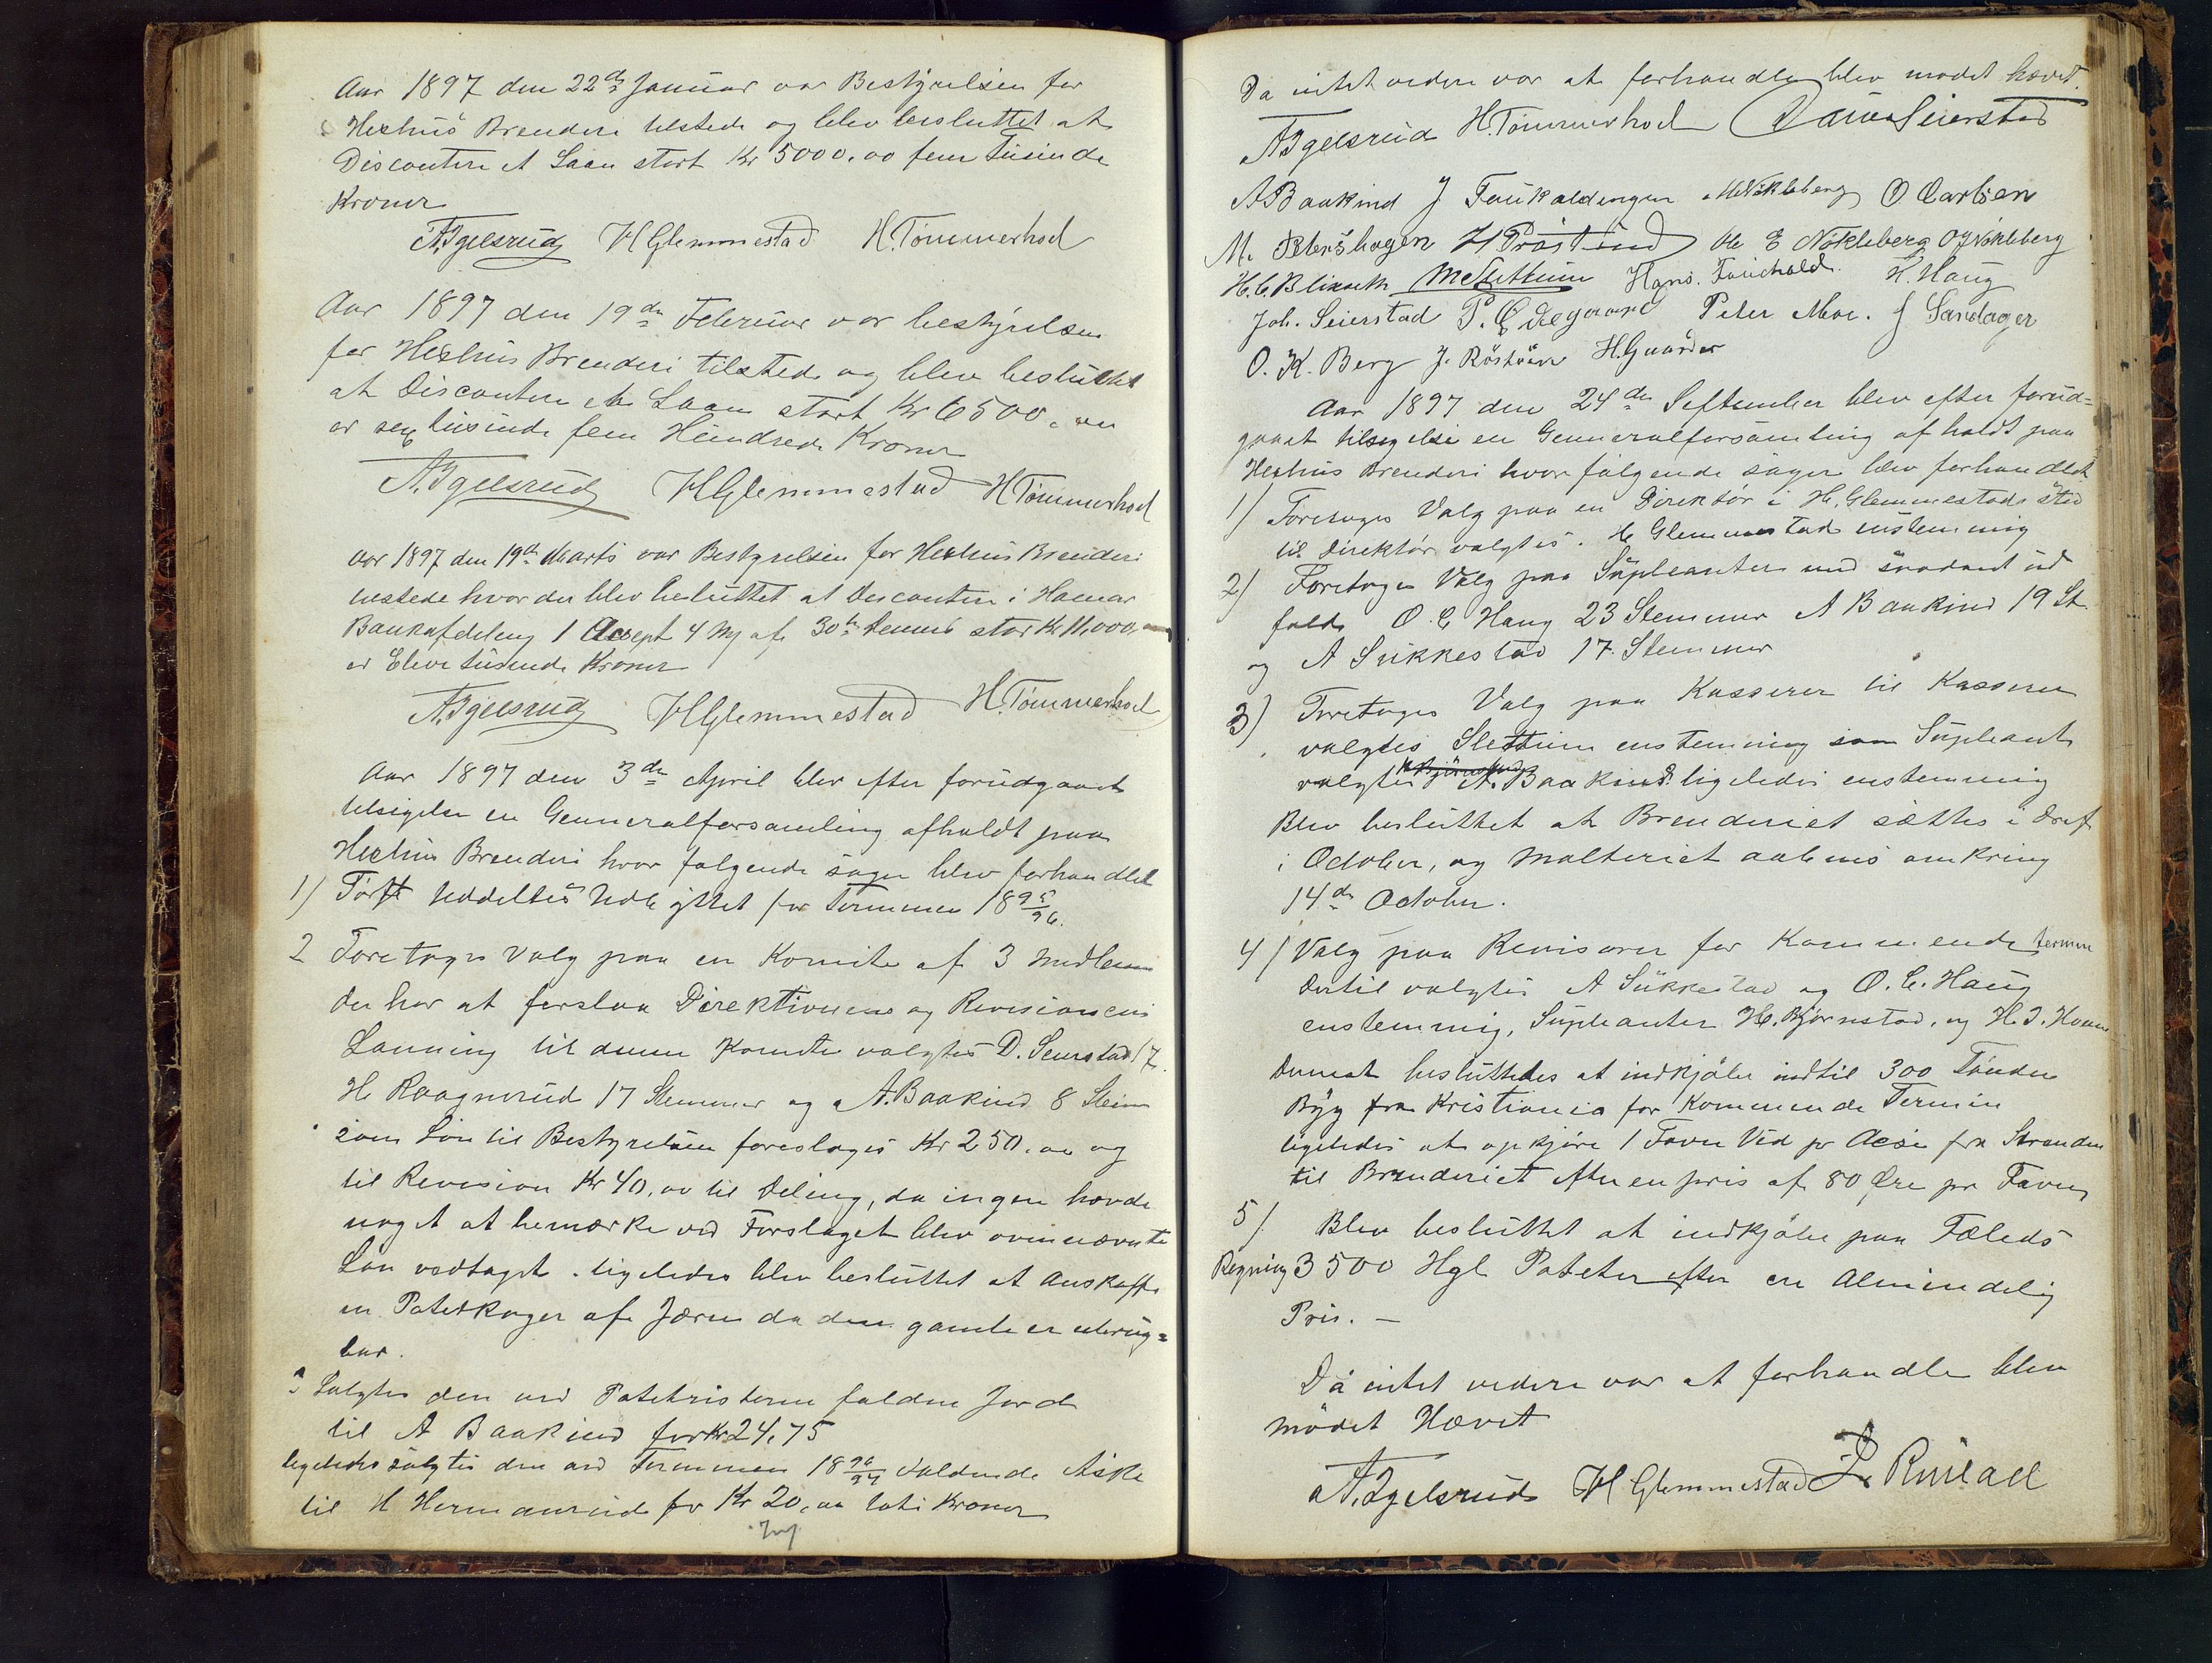 Aar 1897 den 22de Januar var Bestyrelsen for
Hexhus Brenderi tilstede og blev besluttet at
Discontere et Laan stort Kr 5000,00 fem Tusinde
Kroner
A. Igelsrud H Glemmestad H. Tömmerhol
Aar 1897 den 19de Februar var bestyrelsen
for Hexhus Brenderi tilstede og blev besluttet
at Discontere et Laan stort Kr 6500,00
er sex tusinde fem Hundrede Kroner
A. Igelsrud H Glemmestad H Tömmerhol
Aar 1897 den 19de Marts var Bestyrelsen for Hexhus Brenderi
tilstede hvor der blev besluttet at Discontere i Hamar
Bankafdeling 1 Accept 4 af 30te dennes stor Kr 11,000,
er Eleve tusende Kroner
A. Igelsrud H Glemmestad H. Tömmerhol
Aar 1897 den 3de April blev efter forudgaaet
tilsigelse en Genneralforsamling afholdt paa
Hexhus Brenderi hvor følgende sager blev forhandlet
1) Först Uddeltes Udbyttet for Terminen 1895/96.
2 Foretoges Valg paa en Komite af 3 Medlemmer
der har at forslaa Direktionens og Revisionens
Lønning til denne Komite valgtes D. Seierstad 17.
H. Raagnerud 17 Stemmer og A. Baakind 8 Stem
som Løn til Bestyrelsen foresloges Kr 250,00 og
til Revision Kr 40,00 til Deling, da ingen havde
noget at bemærke ved Forslaget blev ovennævnte
Løn vedtaget. ligeledes blev besluttet at Anskaffe
en Potetkoger af Jærn da den gamle er ubrug=
bar.
3 Solgtes den ved Potetristerne faldne Jord
til A Baakind for Kr 24,75
ligeledes solgtes den ved Terminen 1896/97 faldende Aske
til H Hermanrud for Kr 20,00 tote Kroner
Da intet videre var at forhandle blev mødet hævet.
A Igelsrud H. Tömmerhol Seierstad
A Baakind J Faukaldengen M Nökleberg O Carlsen
M. Petershagen H Pröstind Ole E Nökleberg O J Nökleberg
H. C. Blixseth M Slettum Hans. Fauchald. H. Haug
Joh. Seierstad P. Ødegaard Peter Moe. J Sandager
O. K. Berg J. Röstöen H. Gaarder
Aar 1897 den 24de September blev efter forud=
gaaet tilsigelse en Genneralforsamling afholdt paa
Hexhus Brenderi hvor følgende sager blev forhandlet
1) Foretoges Valg paa en Direktør i H. Glemmestads sted
til Direktør valgtes. H Glemmestad enstemmig
2) Foretoges Valg paa Supleanter med saadant ud
fald O. C Haug 23 Stemmer A Baakind 19 St.
og A Sukkestad 17. Stemmer
3) Foretoges Valg paa Kasserer til Kasserer
valgtes Slettum enstemmig som Supleant
valgtes A. Baakind ligeledes enstemmig
Blev besluttet at Brenderiet sættes i Drift
i October, og Malteriet aabnes omkring
14de October.
4) Valg paa Revisorer for Kommende termin
dertil valgtes A Sukkestad og O. C. Haug
enstemmig, Supleanter H. Bjørnstad, og H. J.
Dernest besluttedes at indkjøbe indtil 300 Tønder
Byg fra Kristiania for Kommende Termin
ligeledes at opkjøre 1 Favn Ved pr Acsie fra Stranden
til Brenderiet efter en pris af 80 Øre pr Favn
5) Blev besluttet at indkjøbe paa Fæleds
Regning 3500 Hgl Poteter efter en Almindelig
Pris. –
Da intet videre var at forhandle blev
mødet Hævet
A. Igelsrud H Glemmestad